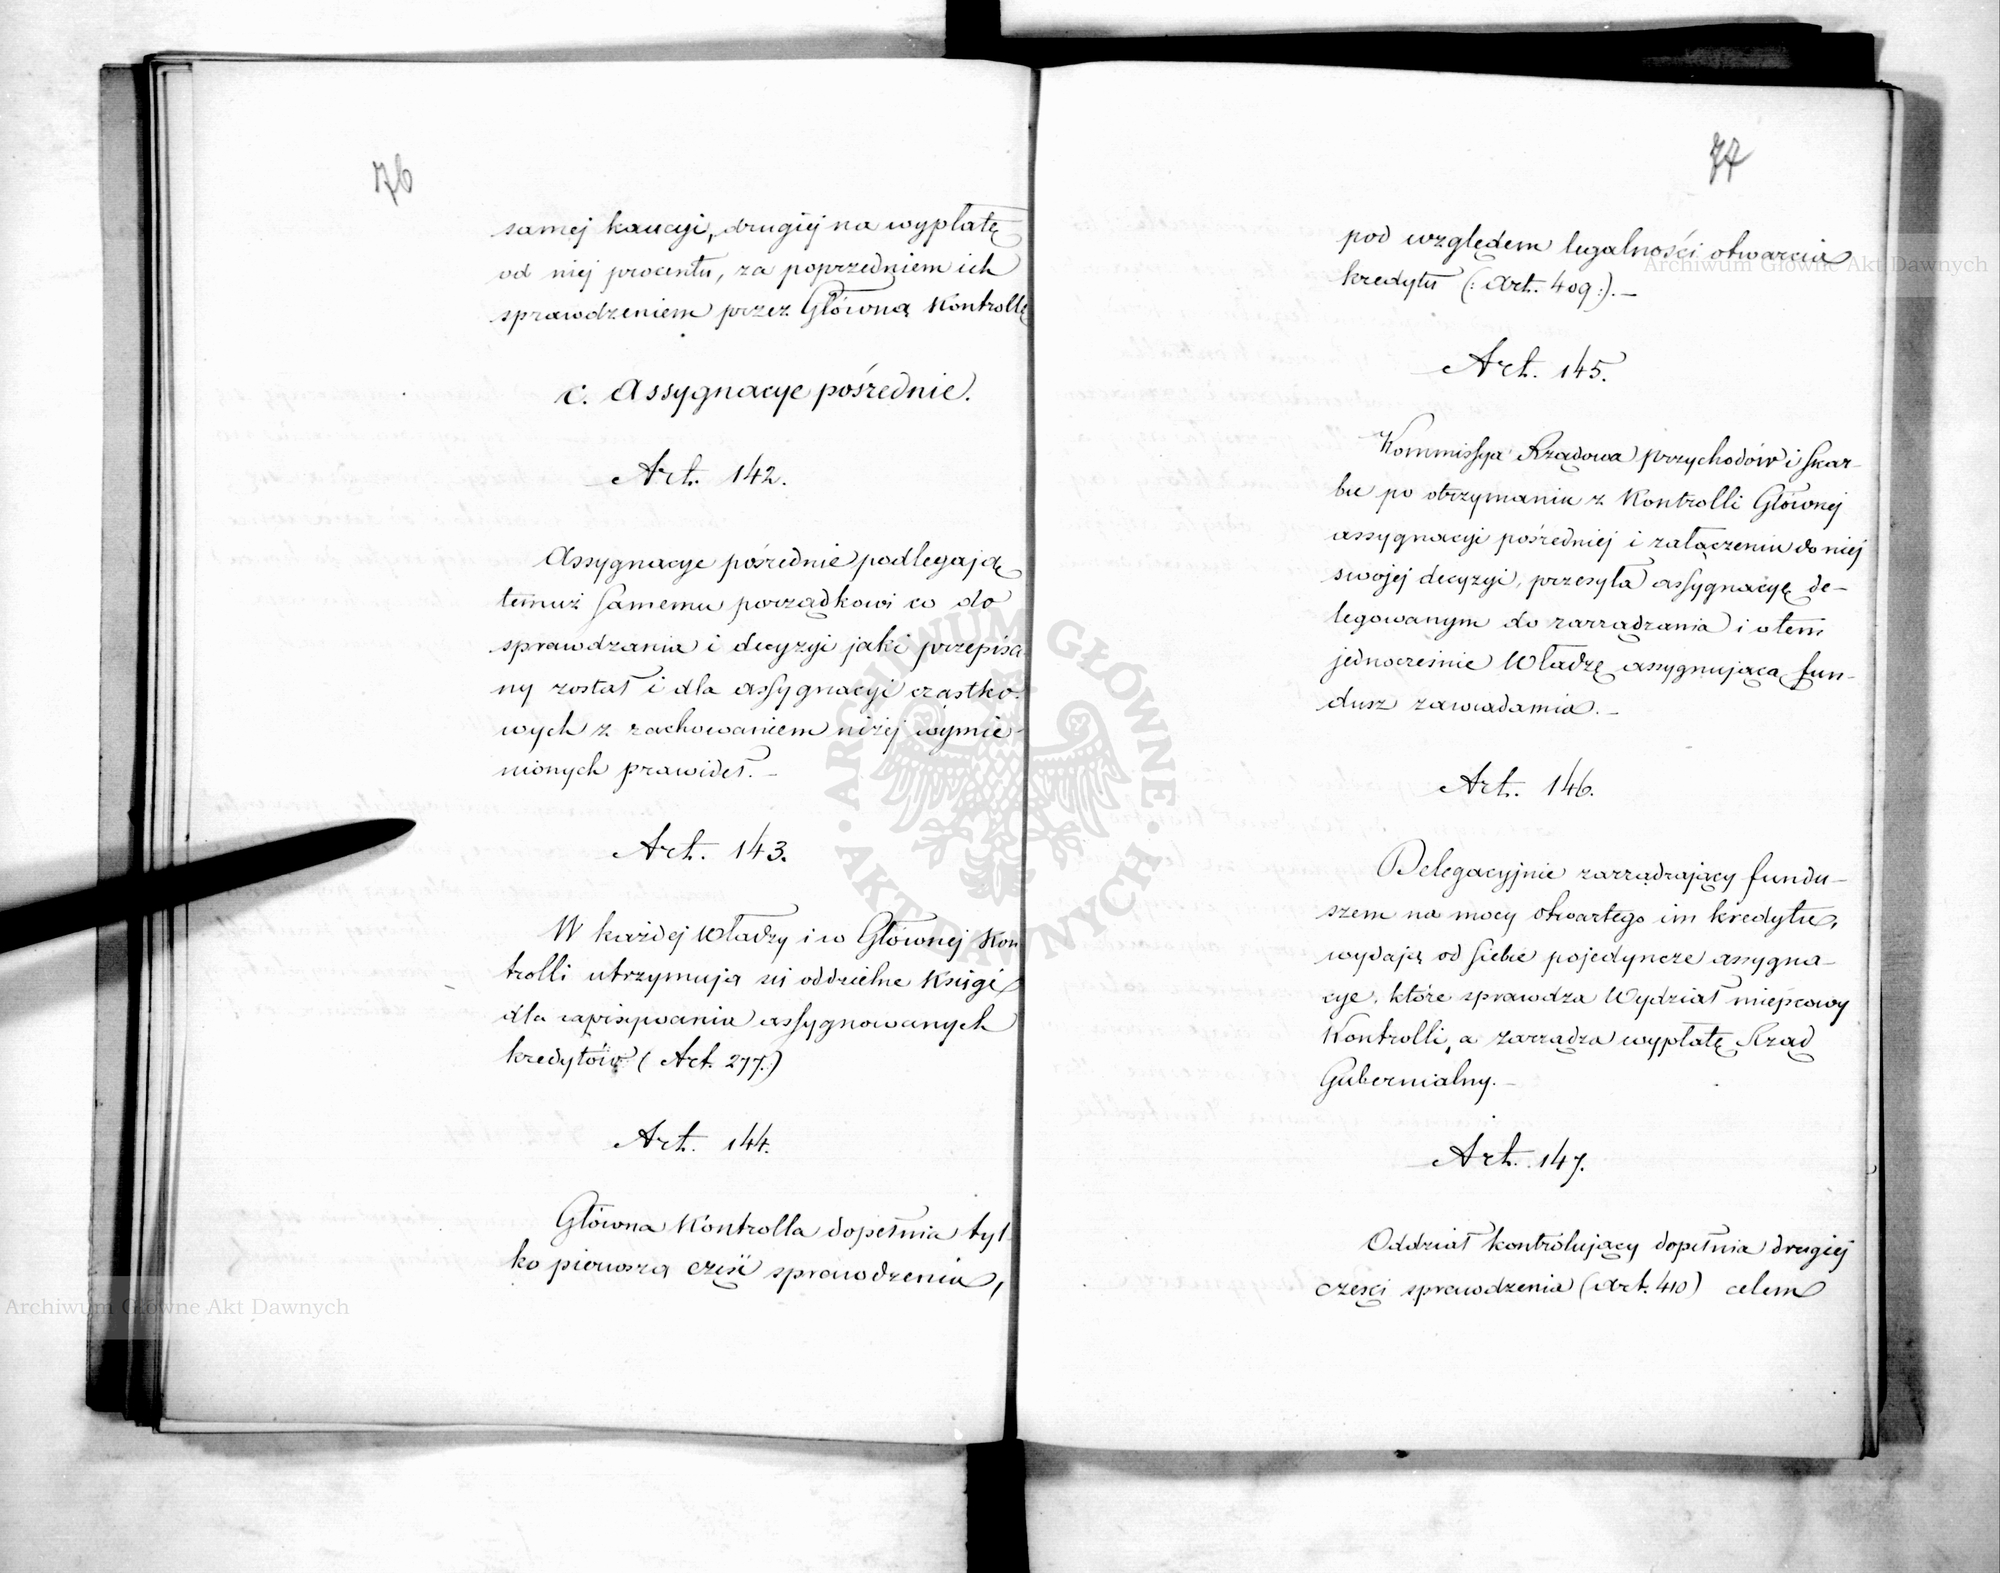 76
samej kaucyi, drugiej na wypłatę
od niej procentu, za poprzedniem ich
sprawdzeniem przez Główną Kontrollę
c. Assygnacye pośrednie.
Art. 142.
Assygnacye pośrednie podlegają
temuż samemu porządkowi co do
sprawdzania i decyzyi jaki przepisa
ny został i dla assygnacyi cząstko-
wych z zachowaniem niżej wymie-
nionych prawideł. –
Art. 143.
W każdej Władzy i w Głównej Kon
trolli utrzymują się oddzielne Księgi
dla zapisywania assygnowanych
kredytów (Art. 277.)
Art. 144.
Główna Kontrolla dopełnia tyl
ko pierwszą część sprawdzenia,
77
pod względem legalności otwarcia
kredytu (: Art. 409 :). –
Art. 145.
Kommissya Rządowa przychodów i Skar-
bu po otrzymaniu z Kontrolli Głównej
assygnacyi pośredniej i załączeniu do niej
swojej decyzyi, przesyła assygnacyę de-
legowanym do zarządzania i o tem
jednocześnie Władzę assygnującą fun-
dusz zawiadamia. –
Art. 146.
Delegacyjnie zarządzający fundu-
szem na mocy otwartego im kredytu,
wydają od siebie pojedyncze assygna-
cye, które sprawdza Wydział miejscowy
Kontrolli, a zarządza wypłatę Rząd
Gubernialny. –
Art. 147.
Oddział kontrolujący dopełnia drugiej
części sprawdzenia (Art. 410) celem
Archiwum Główne Akt Dawnych
Archiwum Główne Akt Dawnych
ARCHIWUM GŁÓWNE AKT DAWNYCH